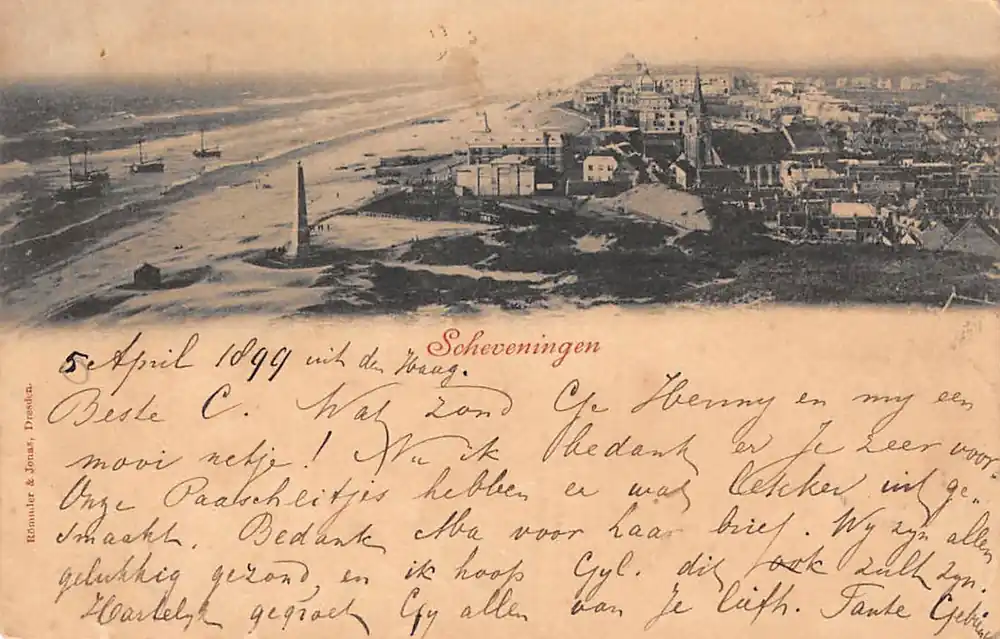 Scheveningen
5 April 1899 uit den Haag.
Beste C. Wat zond Gy Henny en my een
mooi netje! Nu ik bedank er Je zeer voor
Onze Paascheitjes hebben er wat lekker uit ge-
smaakt. Bedank Aba voor haar brief. Wy zyn allen
gelukkig gezond, en ik hoop Gyl. dit ook zult zyn.
Hartelyk gegroet Gy allen van Je liefh. Tante
Römmler & Jonas, Dresden.